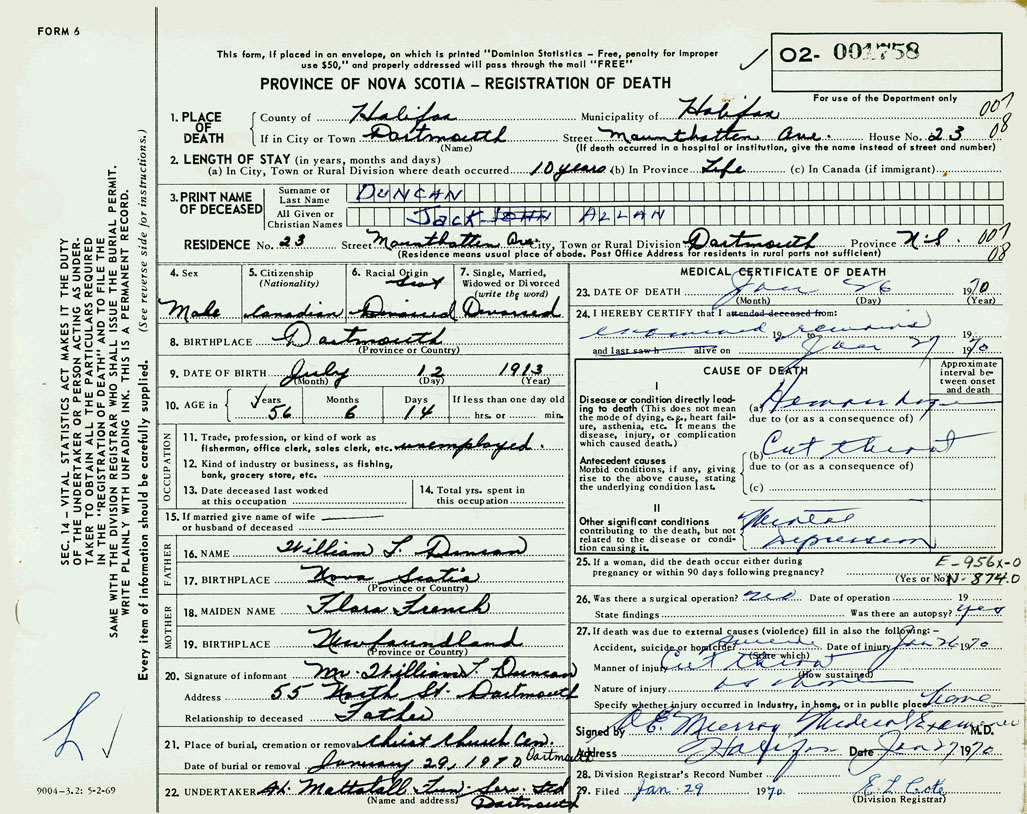 FORM 6
This form, if placed in an envelope, on which is printed "Dominion Statistics – Free, penalty for improper
use $50," and properly addressed will pass through the mail "FREE"
O2- 001758
PROVINCE OF NOVA SCOTIA – REGISTRATION OF DEATH
For use of the Department only
1. PLACE OF DEATH
County of Halifax Municipality of Halifax 007
If in City or Town Dartmouth Street Mounthatten Ave. House No. 23 08
(Name) (If death occurred in a hospital or institution, give the name instead of street and number)
2. LENGTH OF STAY (in years, months and days)
(a) In City, Town or Rural Division where death occurred 10 years (b) In Province Life (c) In Canada (if immigrant)
3. PRINT NAME OF DECEASED
Surname or Last Name DUNCAN
All Given or Christian Names JACK JOHN ALLAN
RESIDENCE No. 23 Street Mounthatten Ave. City, Town or Rural Division Dartmouth Province N.S. 007
(Residence means usual place of abode. Post Office Address for residents in rural parts not sufficient) 08
4. Sex Male
5. Citizenship (Nationality) Canadian
6. Racial Origin Scot Divorced
7. Single, Married, Widowed or Divorced (write the word) Divorced
8. BIRTHPLACE Dartmouth
(Province or Country)
9. DATE OF BIRTH July 12 1913
(Month) (Day) (Year)
10. AGE in Years 56 Months 6 Days 14 If less than one day old hrs. or min.
OCCUPATION
11. Trade, profession, or kind of work as
fisherman, office clerk, sales clerk, etc. unemployed.
12. Kind of industry or business, as fishing,
bank, grocery store, etc.
13. Date deceased last worked
at this occupation
14. Total yrs. spent in
this occupation
15. If married give name of wife
or husband of deceased
FATHER
16. NAME William T. Duncan
17. BIRTHPLACE Nova Scotia
(Province or Country)
MOTHER
18. MAIDEN NAME Flora French
19. BIRTHPLACE Newfoundland
(Province or Country)
20. Signature of informant Mr. William T. Duncan
Address 55 North St. Dartmouth
Relationship to deceased Father
21. Place of burial, cremation or removal Christ Church Cem. Dartmouth
Date of burial or removal January 29, 1970
22. UNDERTAKER Mattatall Fun. Serv. Ltd
(Name and address) Dartmouth
MEDICAL CERTIFICATE OF DEATH
23. DATE OF DEATH Jan 26 1970
(Month) (Day) (Year)
24. I HEREBY CERTIFY that I attended deceased from:
examined 19 to remains 19
and last saw h alive on Jan 27 1970
CAUSE OF DEATH
Approximate interval between onset and death
I
Disease or condition directly leading to death (This does not
mean the mode of dying, e.g., heart failure, asthenia, etc. It means the
disease, injury, or complication
which caused death.)
(a) Hemorrhage
due to (or as a consequence of)
Antecedent causes
Morbid conditions, if any, giving
rise to the above cause, stating
the underlying condition last.
(b) Cut throat
due to (or as a consequence of)
(c)
II
Other significant conditions
contributing to the death, but not
related to the disease or condition causing it.
Mental
depression
25. If a woman, did the death occur either during
pregnancy or within 90 days following pregnancy? (Yes or No)
E-956x-0
N-874.0
26. Was there a surgical operation? no Date of operation 19
State findings Was there an autopsy? yes
27. If death was due to external causes (violence) fill in also the following:–
Accident, suicide or homicide? suicide Date of injury Jan 26 1970
(State which)
Manner of injury Cut throat
(How sustained)
Nature of injury as above
Specify whether injury occurred in Industry, in home, or in public place home
Signed by Murray Medical Examiner M.D.
Address Halifax Date Jan 27 1970
28. Division Registrar's Record Number
29. Filed Jan. 29 1970. E L Cote
(Division Registrar)
SEC. 14 – VITAL STATISTICS ACT MAKES IT THE DUTY
OF THE UNDERTAKER OR PERSON ACTING AS UNDERTAKER TO OBTAIN ALL THE PARTICULARS REQUIRED
IN THE "REGISTRATION OF DEATH" AND TO FILE THE
SAME WITH THE DIVISION REGISTRAR WHO SHALL ISSUE THE BURIAL PERMIT.
WRITE PLAINLY WITH UNFADING INK. THIS IS A PERMANENT RECORD.
Every item of information should be carefully supplied. (See reverse side for instructions.)
9004-3.2: 5-2-69